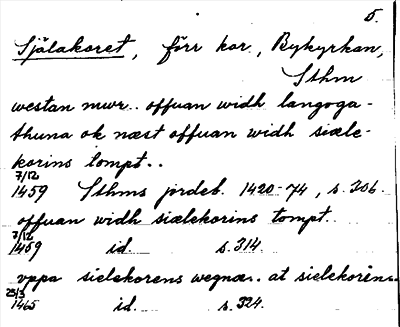 5.
Själakoret, förr kor., Bykyrkan,
Sthm
westan mwr.. offuan widh langoga-
thuna ok næst offuan widh siæle-
korins tompt..
7/12
1459 Sthms jordeb. 1420-74, s. 306.
offuan widh siælekorins tompt.
7/12
1459 id. s. 314.
vppa sielekorens wegnæ.. at sielekorðn..
23/3
1465 id. s. 324.